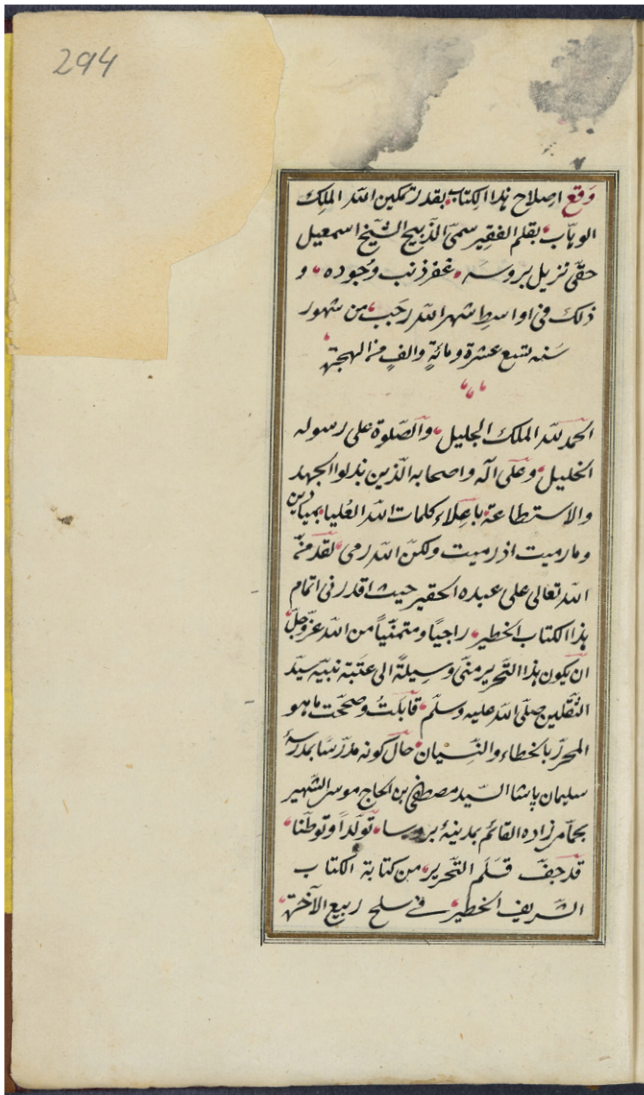 294
وقع اصلاح هذا الكتاب بقدر تمكين الله الملك
الوهاب بقلم الفقير سمى الذبيح الشيخ اسمعيل
حقى نزيل بروسه غفر ذنب وجوده و
ذلك فى اواسط شهر الله رجب من شهور
سنه تسع عشرة ومائة والف من الهجرة
الحمد لله الملك الجليل والصلوة على رسوله
الخليل وعلى آله واصحابه الذين بذلوا الجهد
والاستطاعة باعلاء كلمات الله العليا
وما رميت اذ رميت ولكن الله رمى لقد منّ
الله تعالى على عبده الحقير حيث اقدر فى اتمام
هذا الكتاب الخطير راجياً ومتمنّياً من الله عزّ وجلّ
ان يكون هذا التحرير منّى وسيلةً الى عتبة نبيّه سيّد
الثّقلين صلّى الله عليه وسلّم قابلتُ وصحّحت ما هو
المحرّر بالخطاء والنّسيان حال كونه مدرّسا بمدرسة
سليمان پاشا السيّد مصطفى بن الحاج موسى الشهير
زاده القائم بمدينة بروسا تولّداً وتوطّنا
قد جفّ قلم التحرير من كتابة الكتاب
الشريف الخطير فى سلخ ربيع الآخرة